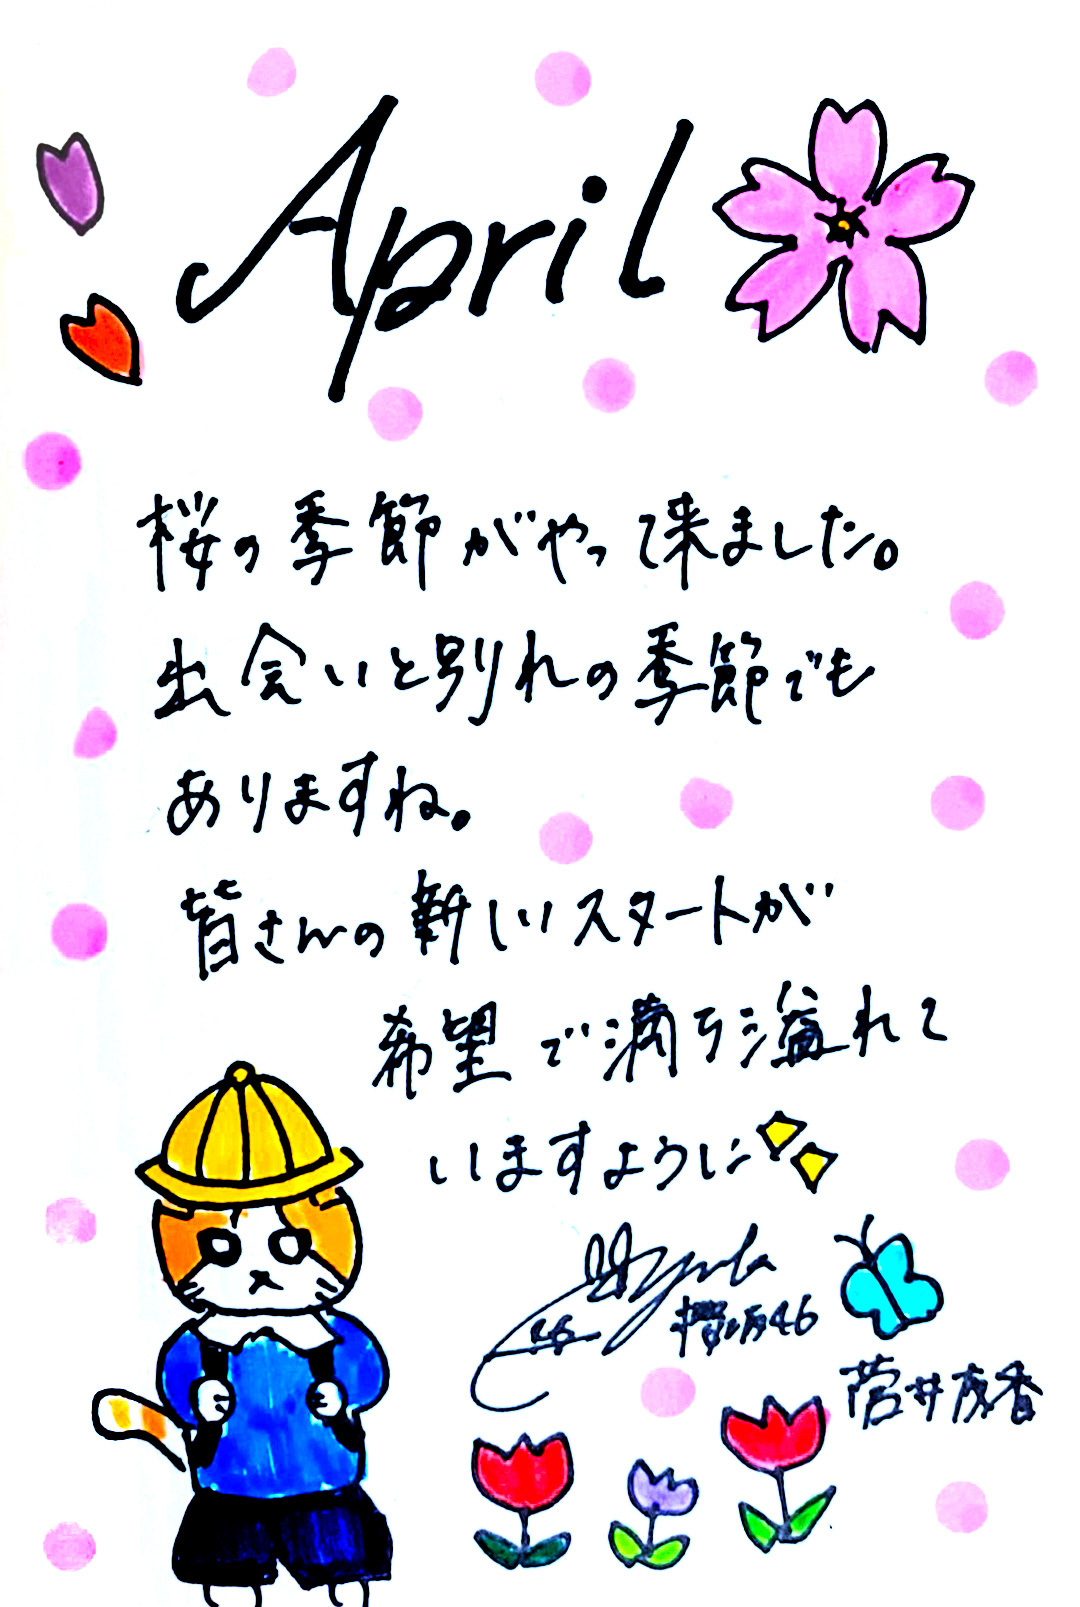 April
桜の季節がやって来ました。
出会いと別れの季節でも
ありますね。
皆さんの新しいスタートが
希望で満ち溢れて
いますように
櫻坂46
菅井友香